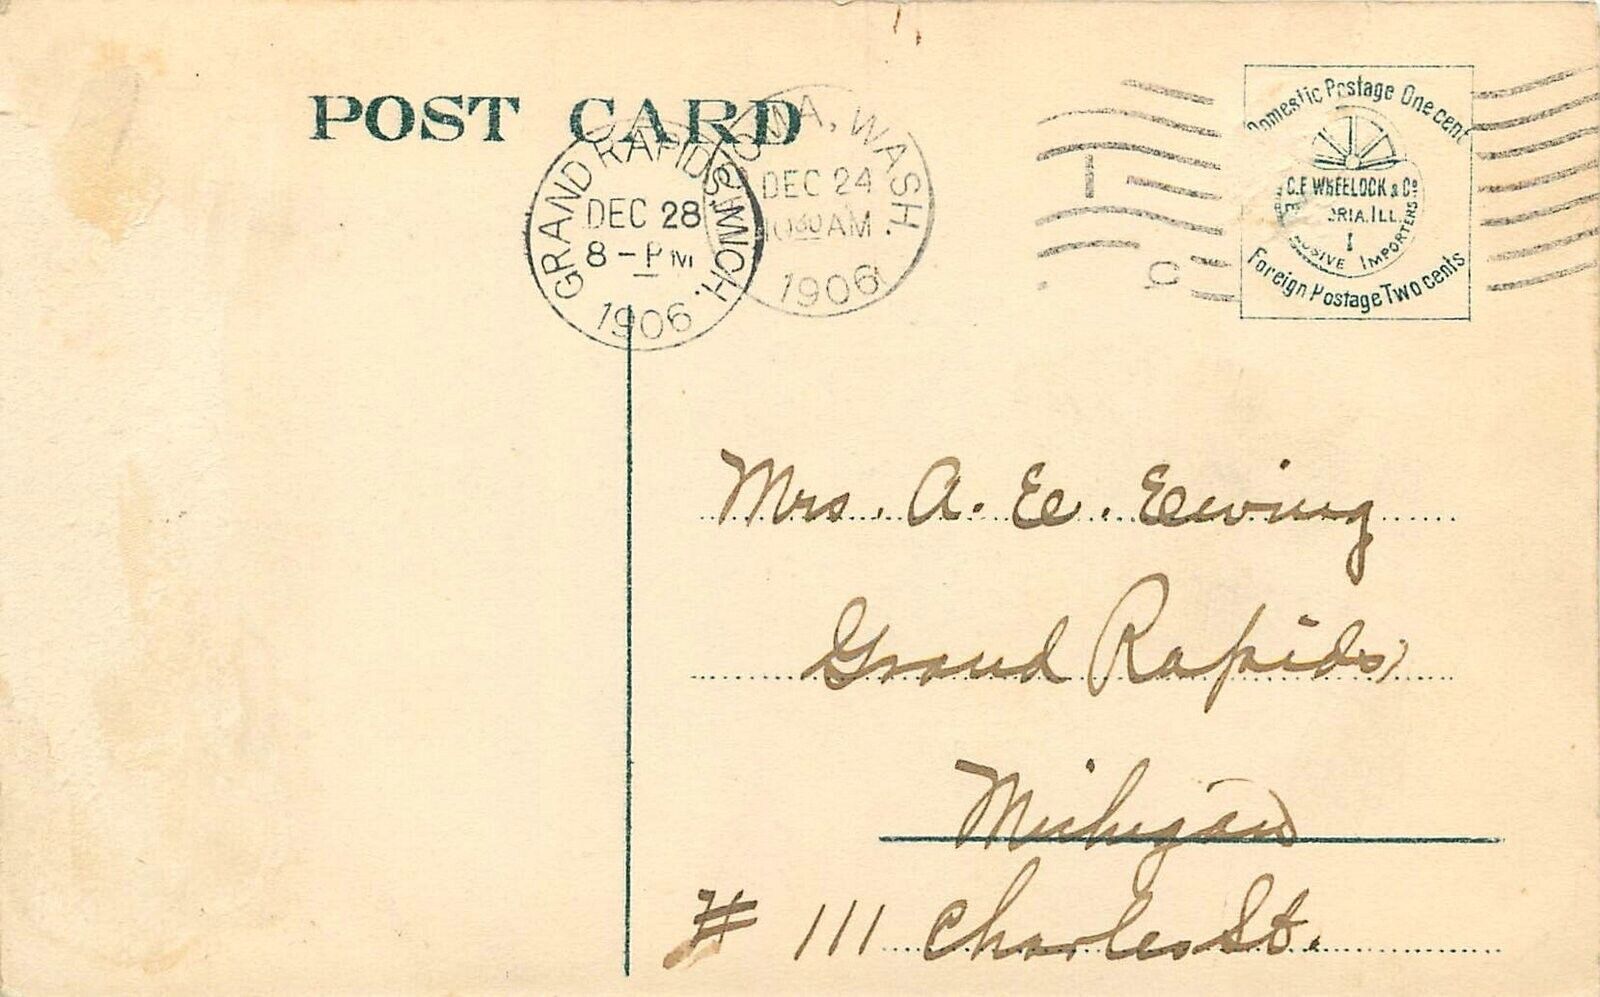 POST CARD
WA, WASH.
DEC 24
AM
1906
GRAND RAPIDS, MICH.
DEC 28
8-PM
1906
Domestic Postage One cent
C.E. WHEELOCK & Co
ILL.
IMPORTERS
Foreign Postage Two cents
Mrs. A. E. Ewing
Grand Rapids,
Michigan
# 111 Charles St.